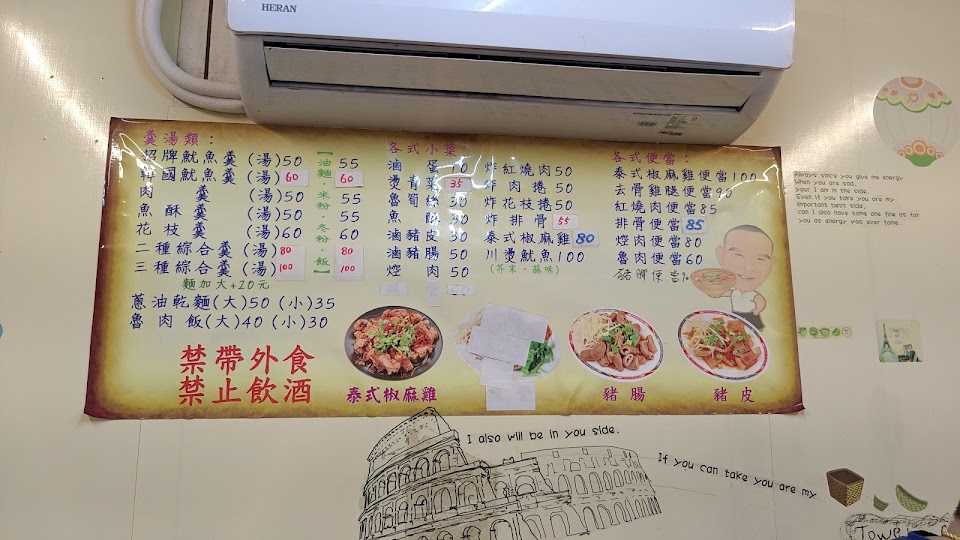 HERAN
羹湯類：
招牌魷魚羹(湯)50 55
韓國魷魚羹(湯)60 60
肉 羹(湯)50 55
魚酥羹(湯)50 55
花枝羹(湯)60 60
二種綜合羹(湯)80 80
三種綜合羹(湯)100 100
【油麵·米粉·冬粉·飯】
麵加大+10元
蔥油乾麵(大)50 (小)35
魯肉飯(大)40 (小)30
禁帶外食
禁止飲酒
各式小菜：
滷 蛋10
燙青菜35
魯筍絲30
魚 酥30
滷豬皮30
滷豬腸50
焢 肉50
炸紅燒肉50
炸肉捲50
炸花枝捲50
炸排骨55
泰式椒麻雞80
川燙魷魚100
(芥末·蒜味)
各式便當：
泰式椒麻雞便當100
去骨雞腿便當90
紅燒肉便當85
排骨便當85
焢肉便當80
魯肉便當60
豬腳便當90
泰式椒麻雞
豬腸
豬皮
Always since you give me energy
When you are sad,
your I am in the side.
Even if you take you are my
important best side,
can I also have some one fine as for
you as energy was ever tome.
I also will be in you side.
If you can take you are my